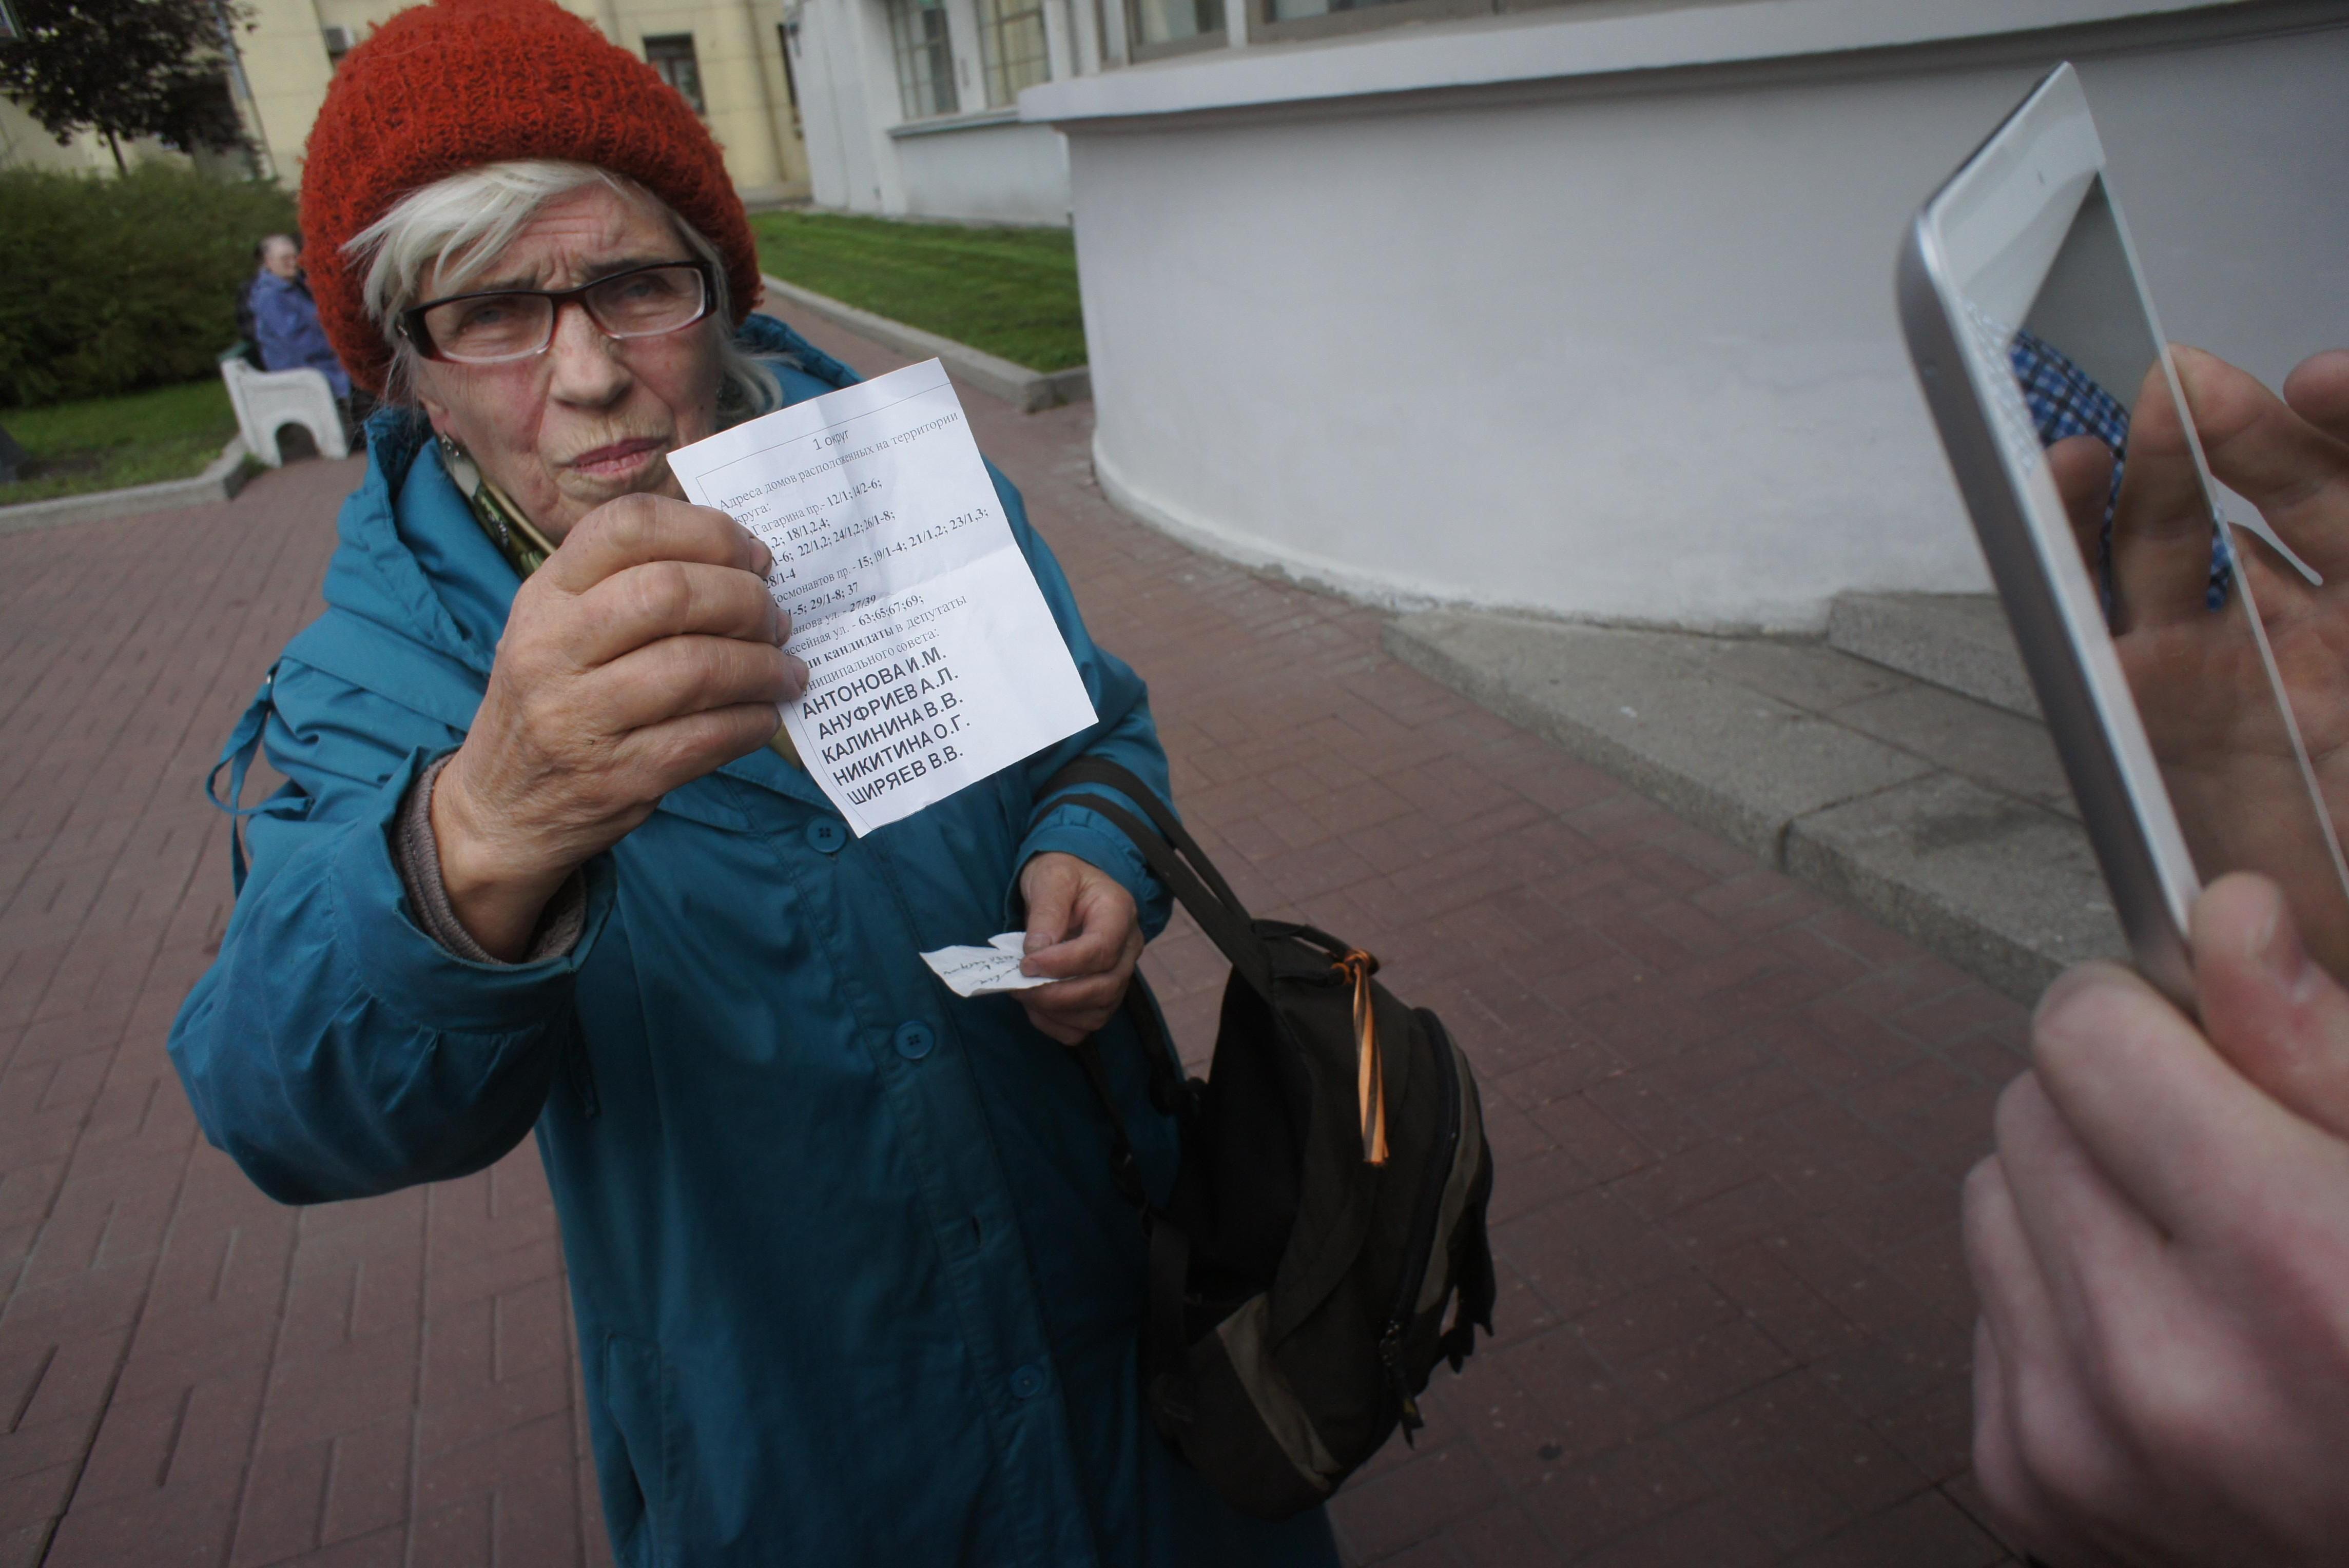 1 округ
Адреса домов расположенных на территории
округа:
Гагарина пр.- 12/1; 14/2-6;
,2; 18/1,2,4;
1-6; 22/1,2; 24/1,2; 26/1-8;
28/1-4
Космонавтов пр.- 15; 19/1-4; 21/1,2; 23/1,3;
1-5; 29/1-8; 37
ул. - 27/39
ул. - 63;65;67;69;
кандидаты в депутаты
муниципального совета:
АНТОНОВА И.М.
АНУФРИЕВ А.Л.
КАЛИНИНА В.В.
НИКИТИНА О.Г.
ШИРЯЕВ В.В.